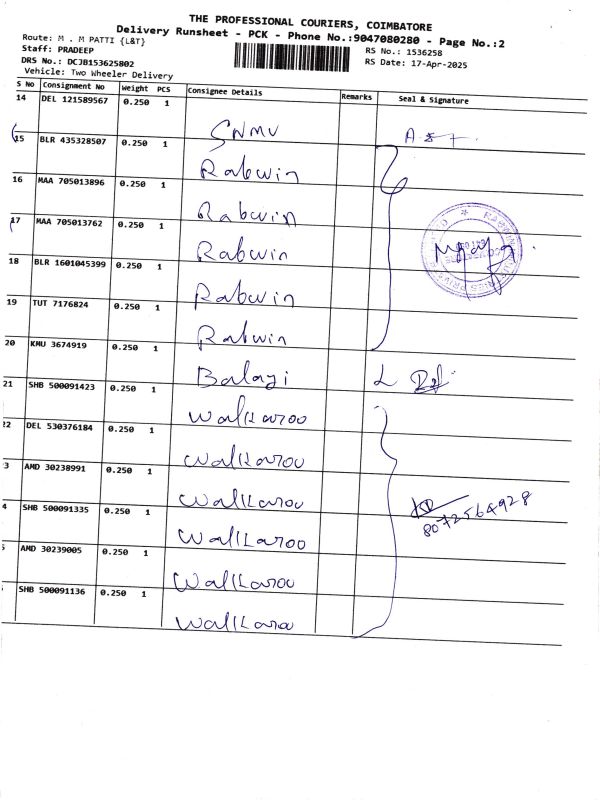 THE PROFESSIONAL COURIERS, COIMBATORE
Delivery Runsheet - PCK - Phone No.:9047080280 - Page No.:2
Route: M . M PATTI {L&T}
Staff: PRADEEP
RS No.: 1536258
DRS No.: DCJB153625802
RS Date: 17-Apr-2025
Vehicle: Two Wheeler Delivery
S No Consignment No Weight PCS Consignee Details Remarks Seal & Signature
14 DEL 121589567 0.250 1 SNMV
15 BLR 435328507 0.250 1 Rabwin
16 MAA 705013896 0.250 1 Rabwin
17 MAA 705013762 0.250 1 Rabwin
18 BLR 1601045399 0.250 1 Rabwin
19 TUT 7176824 0.250 1 Rabwin
20 KMU 3674919 0.250 1 Balaji
21 SHB 500091423 0.250 1 Walkaroo
22 DEL 530376184 0.250 1 Walkaroo
3 AMD 30238991 0.250 1 Walkaroo
4 SHB 500091335 0.250 1 Walkaroo
8072564928
5 AMD 30239005 0.250 1 Walkaroo
SHB 500091136 0.250 1 Walkaroo